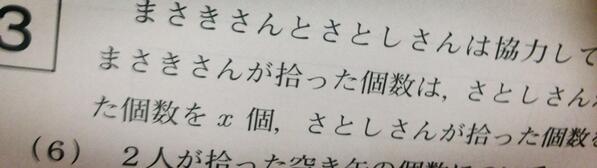 3
まさきさんとさとしさんは協力して
まさきさんが拾った個数は，さとしさん
た個数を x 個，さとしさんが拾った個数
(6) 2人が拾った空き缶の個数